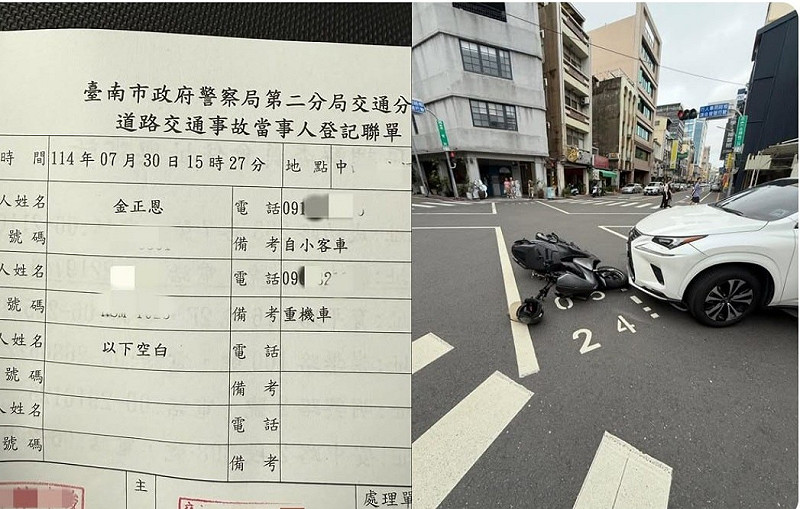 臺南市政府警察局第二分局交通分
道路交通事故當事人登記聯單
時間 114年07月30日15時27分 地點 中
人姓名 金正恩 電話 091
號碼 備考 自小客車
人姓名 電話 09
號碼 備考 重機車
人姓名 以下空白 電話
號碼 備考
人姓名 電話
號碼 備考
主 處理單
24